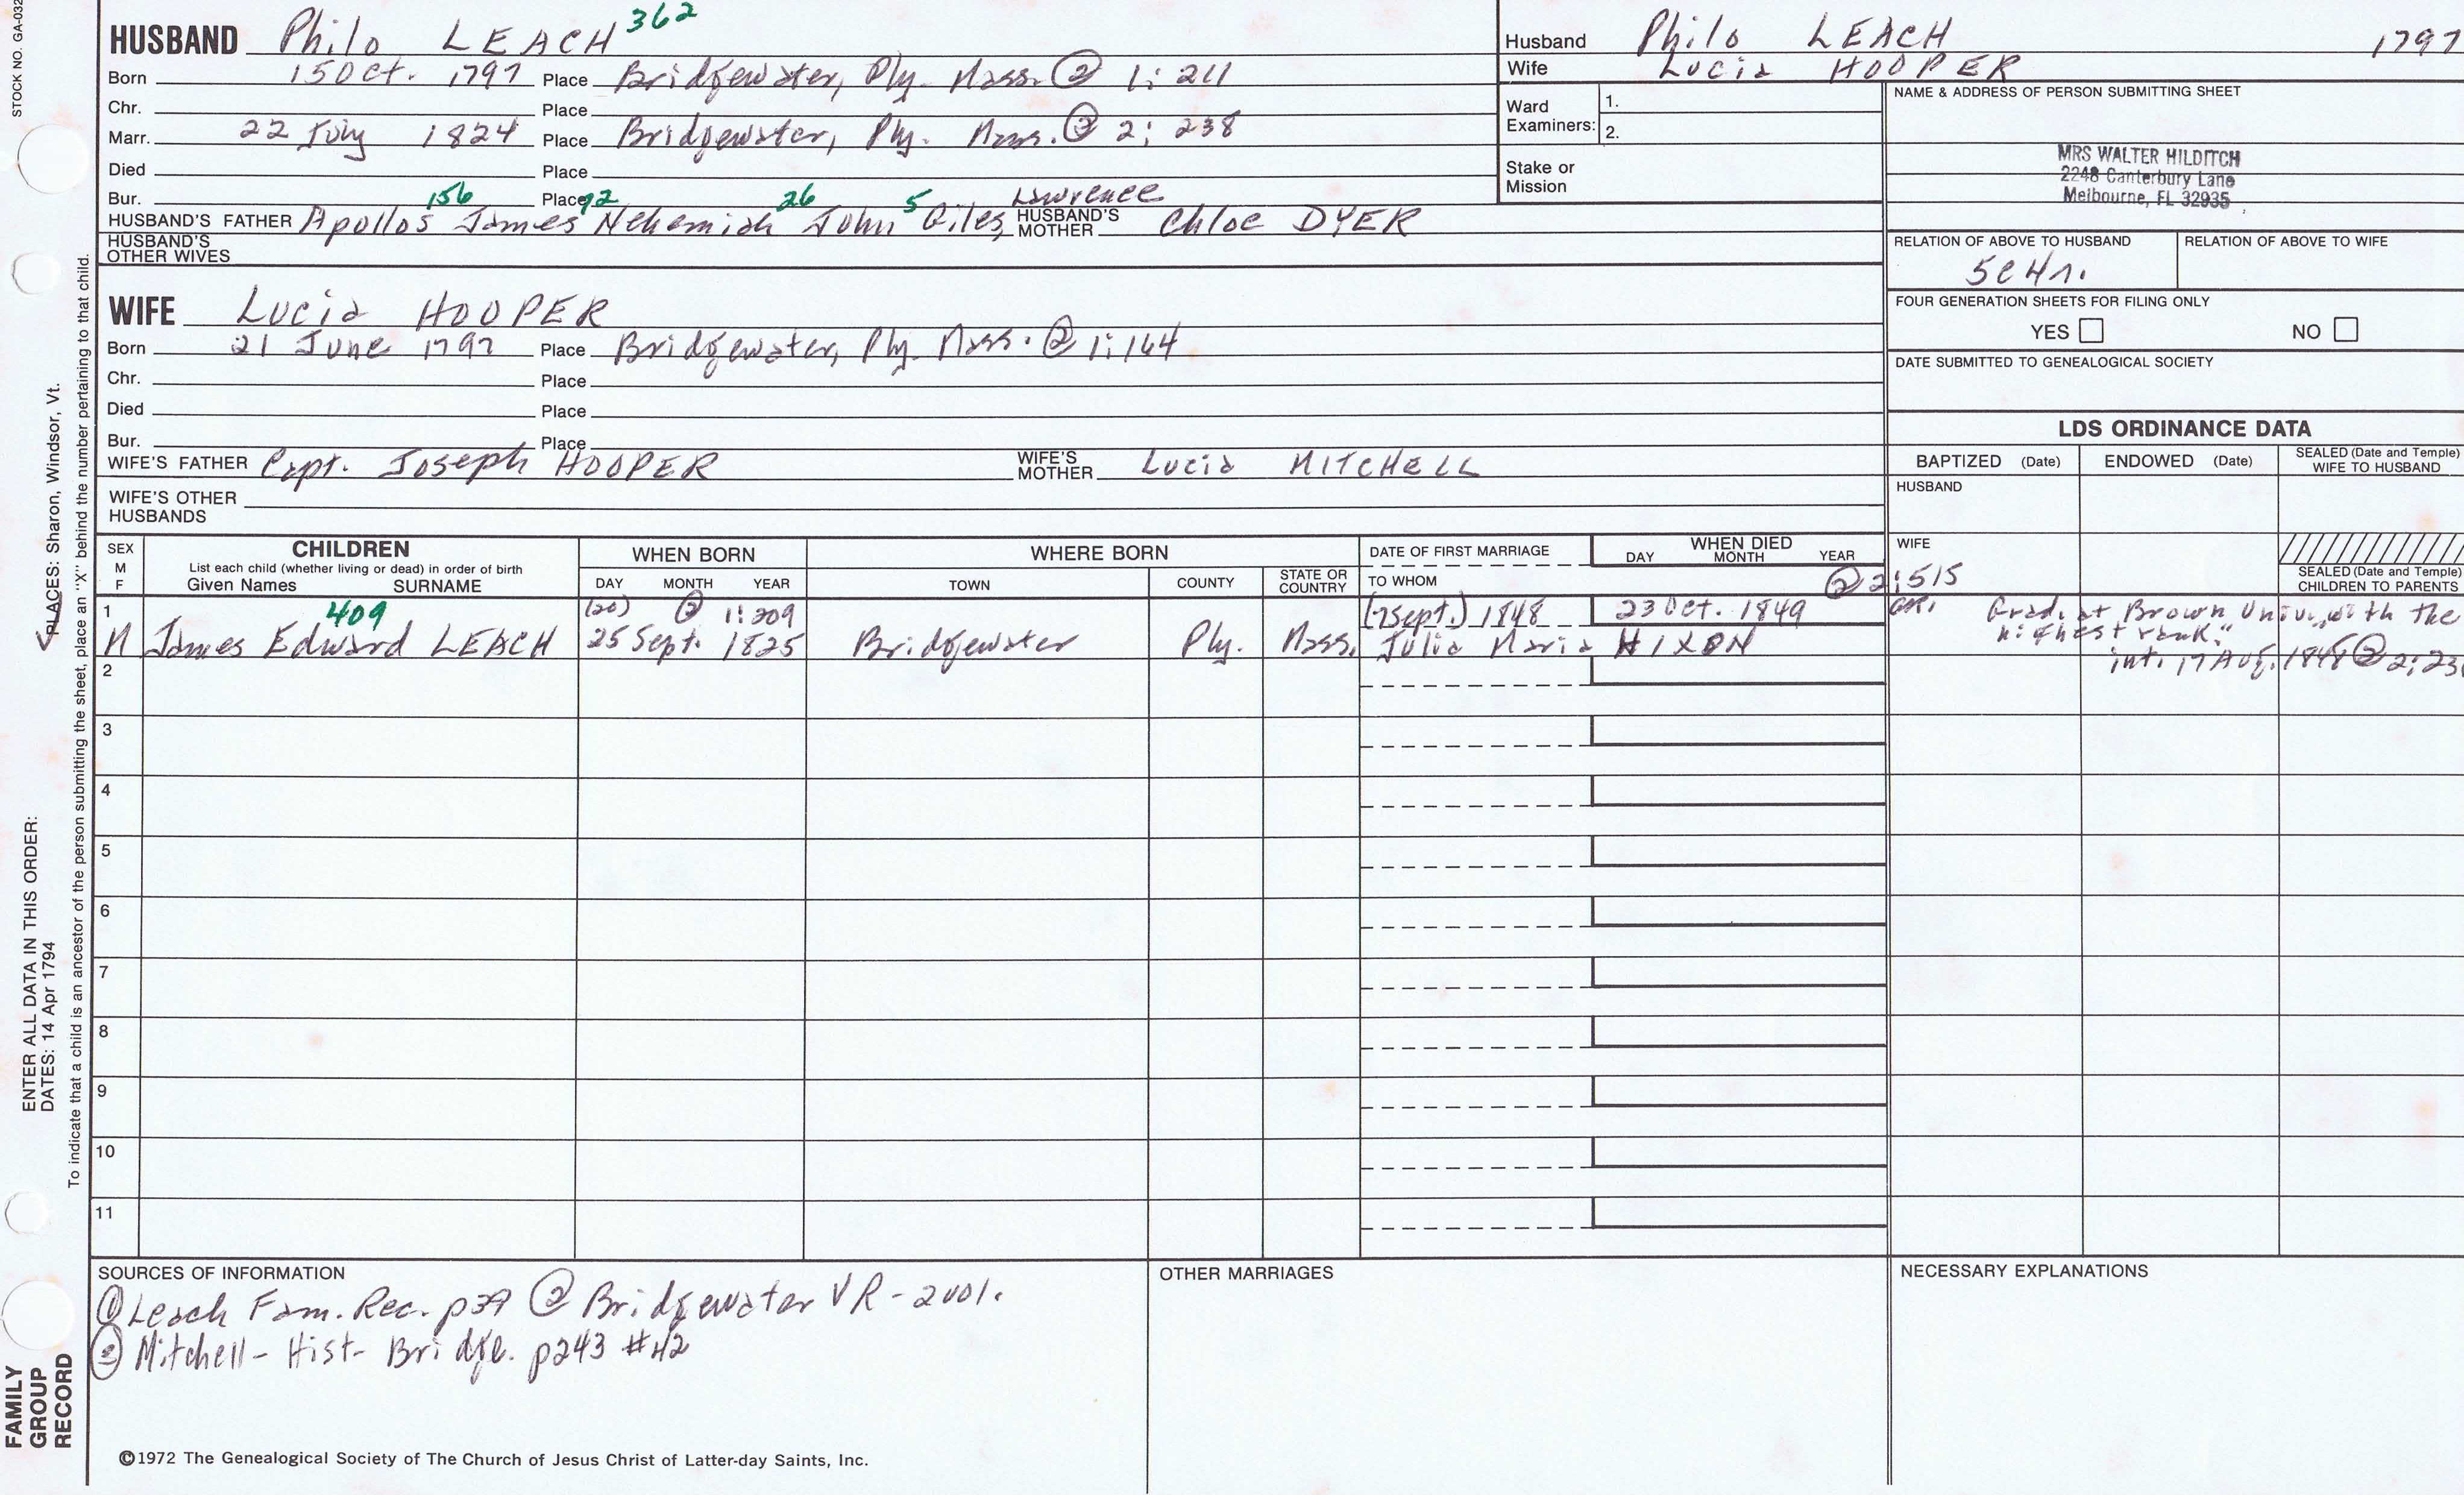 STOCK NO. GA-032
HUSBAND Philo LEACH 362
Born 15 Oct. 1797 Place Bridgewater, Ply. Mass. ② 1:211
Chr. Place
Marr. 22 July 1824 Place Bridgewater, Ply. Mass. ② 2:238
Died Place
Bur. Place
156 92 26 5 Lawrence
HUSBAND'S FATHER Apollos James Nehemiah John Giles, HUSBAND'S MOTHER Chloe DYER
HUSBAND'S OTHER WIVES
Husband Philo LEACH 1797
Wife Lucia HOOPER
Ward Examiners: 1.
2.
Stake or Mission
NAME & ADDRESS OF PERSON SUBMITTING SHEET
MRS WALTER HILDITCH
2248 Canterbury Lane
Melbourne, FL 32935
RELATION OF ABOVE TO HUSBAND RELATION OF ABOVE TO WIFE
5C4r.
FOUR GENERATION SHEETS FOR FILING ONLY
YES NO
DATE SUBMITTED TO GENEALOGICAL SOCIETY
WIFE Lucia HOOPER
Born 21 June 1797 Place Bridgewater, Ply. Mass. ② 1:164
Chr. Place
Died Place
Bur. Place
WIFE'S FATHER Capt. Joseph HOOPER WIFE'S MOTHER Lucia MITCHELL
WIFE'S OTHER HUSBANDS
LDS ORDINANCE DATA
BAPTIZED (Date) ENDOWED (Date) SEALED (Date and Temple) WIFE TO HUSBAND
HUSBAND
WIFE
SEALED (Date and Temple) CHILDREN TO PARENTS
SEX M F
CHILDREN
List each child (whether living or dead) in order of birth
Given Names SURNAME
WHEN BORN
DAY MONTH YEAR
WHERE BORN
TOWN COUNTY STATE OR COUNTRY
DATE OF FIRST MARRIAGE
TO WHOM
WHEN DIED
DAY MONTH YEAR
② 2:515
1 409 (20) ② 1:209 (7 Sept.) 1848 23 Oct. 1849 GR1
M James Edward LEACH 25 Sept. 1825 Bridgewater Ply. Mass. Julia Maria HIXON
Grad. at Brown Univ. "with the
highest rank."
int. 17 Aug. 1848 ② 2:23
2
3
4
5
6
7
8
9
10
11
SOURCES OF INFORMATION
① Leach Fam. Rec. p39 ② Bridgewater VR - 2vol.
③ Mitchell - Hist - Bridge. p243 #42
OTHER MARRIAGES
NECESSARY EXPLANATIONS
©1972 The Genealogical Society of The Church of Jesus Christ of Latter-day Saints, Inc.
FAMILY
GROUP
RECORD
ENTER ALL DATA IN THIS ORDER:
DATES: 14 Apr 1794
PLACES: Sharon, Windsor, Vt.
To indicate that a child is an ancestor of the person submitting the sheet, place an "X" behind the number pertaining to that child.